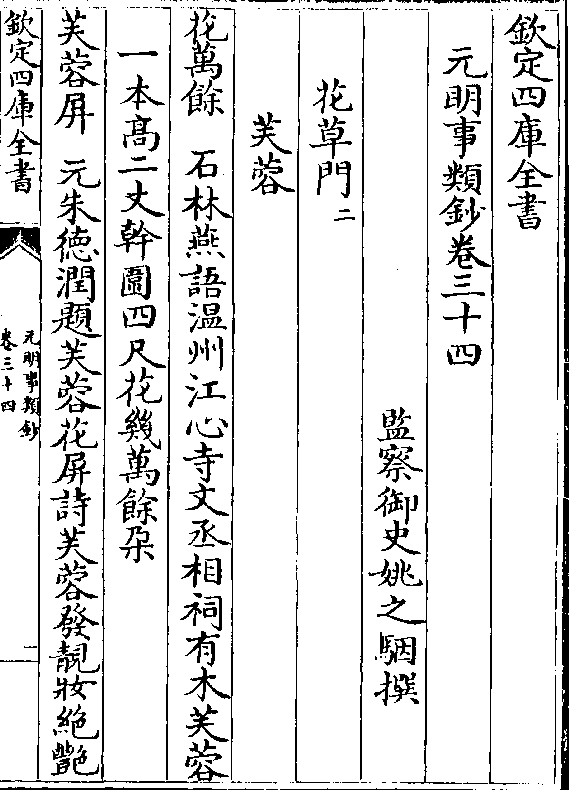 欽定四庫全書
元明事類鈔卷三十四
監察御史姚之駰撰
花草門二
芙蓉
花萬餘　石林燕語温州江心寺文丞相祠有木芙蓉
一本高二丈幹圍四尺花幾萬餘朶
芙蓉屏　元朱徳潤題芙蓉花屏詩芙蓉發靚妝絶艷
欽定四庫全書
元明事類鈔
卷三十四
一